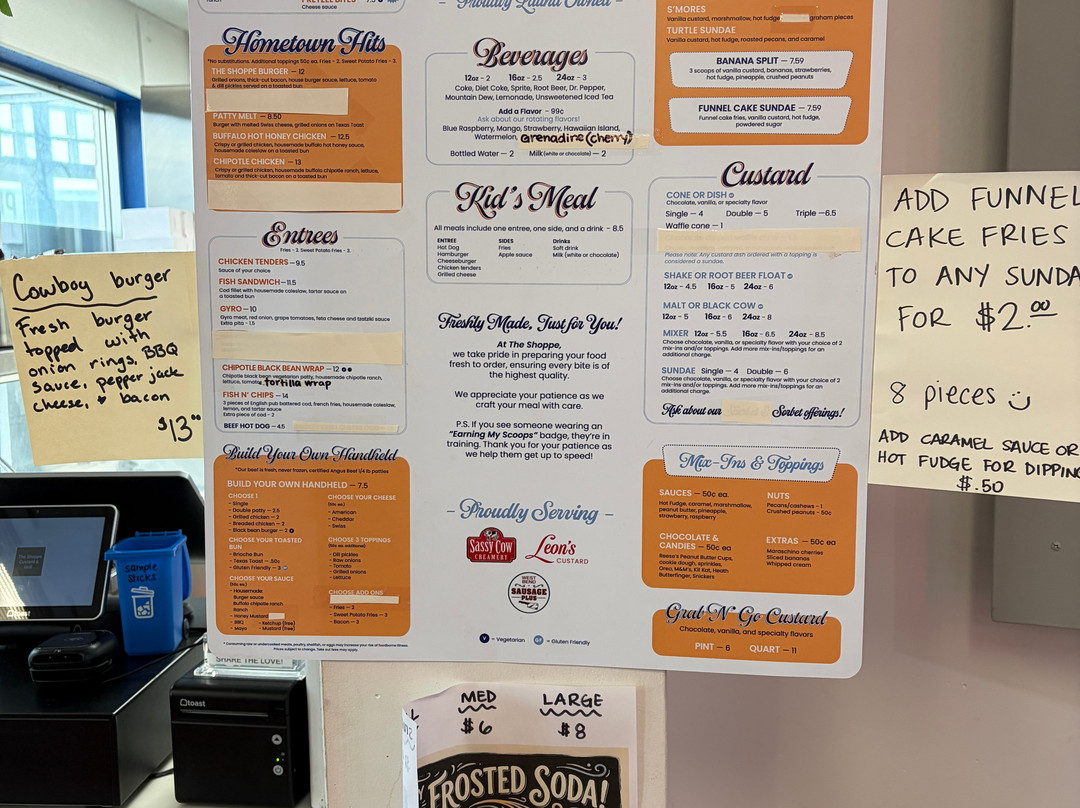 PRETZEL BITES
Cheese sauce
Hometown Hits
*No substitutions. Additional toppings 50¢ ea. Fries - 2. Sweet Potato Fries - 3.
THE SHOPPE BURGER — 12
Grilled onions, thick-cut bacon, house burger sauce, lettuce, tomato
& dill pickles served on a toasted bun
PATTY MELT — 8.50
Burger with melted Swiss cheese, grilled onions on Texas Toast
BUFFALO HOT HONEY CHICKEN — 12.5
Crispy or grilled chicken, housemade buffalo hot honey sauce,
housemade coleslaw on a toasted bun
CHIPOTLE CHICKEN — 13
Crispy or grilled chicken, housemade buffalo chipotle ranch, lettuce,
tomato and thick-cut bacon on a toasted bun
Entrees
Fries - 2. Sweet Potato Fries - 3.
CHICKEN TENDERS — 9.5
Sauce of your choice
FISH SANDWICH — 11.5
Cod fillet with housemade coleslaw, tartar sauce on
a toasted bun
GYRO — 10
Gyro meat, red onion, grape tomatoes, feta cheese and tzatziki sauce
Extra pita - 1.5
CHIPOTLE BLACK BEAN WRAP — 12
Chipotle black bean vegetarian patty, housemade chipotle ranch,
lettuce, tomato tortilla wrap
FISH N' CHIPS — 14
3 pieces of English pub battered cod, french fries, housemade coleslaw,
lemon, and tartar sauce
Extra piece of cod - 2
BEEF HOT DOG — 4.5
Build Your Own Handheld
*Our beef is fresh, never frozen, certified Angus Beef 1/4 lb patties
BUILD YOUR OWN HANDHELD — 7.5
CHOOSE 1
- Single
- Double patty — 2.5
- Grilled chicken — 2
- Breaded chicken — 2
- Black bean burger — 3
CHOOSE YOUR TOASTED
BUN
- Brioche Bun
- Texas Toast — 50c
- Gluten Friendly — 3
CHOOSE YOUR SAUCE
- Housemade:
Burger sauce
Buffalo chipotle ranch
Ranch
- Honey Mustard
- BBQ - Ketchup (free)
- Mayo - Mustard (free)
CHOOSE YOUR CHEESE
- American
- Cheddar
- Swiss
CHOOSE 3 TOPPINGS
- Dill pickles
- Raw onions
- Tomato
- Grilled onions
- Lettuce
CHOOSE ADD ONS
- Fries — 2
- Sweet Potato Fries — 3
- Bacon — 3
* Consuming raw or undercooked meats, poultry, shellfish, or eggs may increase your risk of foodborne illness.
Prices subject to change. Take out fees may apply.
- Proudly Latina Owned -
Beverages
12oz - 2 16oz - 2.5 24oz - 3
Coke, Diet Coke, Sprite, Root Beer, Dr. Pepper,
Mountain Dew, Lemonade, Unsweetened Iced Tea
Add a Flavor - 99c
Ask about our rotating flavors!
Blue Raspberry, Mango, Strawberry, Hawaiian Island,
Watermelon, Grenadine (cherry)
Bottled Water — 2 Milk (white or chocolate) — 2
Kid's Meal
All meals include one entree, one side, and a drink - 8.5
ENTREE
Hot Dog
Hamburger
Cheeseburger
Chicken tenders
Grilled cheese
SIDES
Fries
Apple sauce
Drinks
Soft drink
Milk (white or chocolate)
Freshly Made, Just for You!
At The Shoppe,
we take pride in preparing your food
fresh to order, ensuring every bite is of
the highest quality.
We appreciate your patience as we
craft your meal with care.
P.S. If you see someone wearing an
"Earning My Scoops" badge, they're in
training. Thank you for your patience as
we help them get up to speed!
- Proudly Serving -
SASSY COW
CREAMERY
Leon's
CUSTARD
WEST
BEND
SAUSAGE
PLUS
V = Vegetarian GF = Gluten Friendly
S'MORES
Vanilla custard, marshmallow, hot fudge graham pieces
TURTLE SUNDAE
Vanilla custard, hot fudge, roasted pecans, and caramel
BANANA SPLIT — 7.59
3 scoops of vanilla custard, bananas, strawberries,
hot fudge, pineapple, crushed peanuts
FUNNEL CAKE SUNDAE — 7.59
Funnel cake fries, vanilla custard, hot fudge,
powdered sugar
Custard
CONE OR DISH
Chocolate, vanilla, or specialty flavor
Single — 4 Double — 5 Triple —6.5
Waffle cone — 1
Please note: Any custard dish ordered with a topping is
considered a sundae.
SHAKE OR ROOT BEER FLOAT
12oz - 4.5 16oz — 5 24oz — 6
MALT OR BLACK COW
12oz — 5 16oz — 6 24oz — 8
MIXER 12oz — 5.5 16oz — 6.5 24oz — 8.5
Choose chocolate, vanilla, or specialty flavor with your choice of 2
mix-ins and/or toppings. Add more mix-ins/toppings for an
additional charge.
SUNDAE Single — 4 Double — 6
Choose chocolate, vanilla, or specialty flavor with your choice of 2
mix-ins and/or toppings. Add more mix-ins/toppings for an
additional charge.
Ask about our Sorbet offerings!
Mix-Ins & Toppings
SAUCES — 50c ea.
Hot Fudge, caramel, marshmallow,
peanut butter, pineapple,
strawberry, raspberry
CHOCOLATE &
CANDIES — 50c ea
Reese's Peanut Butter Cups,
cookie dough, sprinkles,
Oreo, M&M's, Kit Kat, Heath
Butterfinger, Snickers
NUTS
Pecans/cashews - 1
Crushed peanuts - 50c
EXTRAS — 50c ea
Maraschino cherries
Sliced bananas
Whipped cream
Grab 'N' Go Custard
Chocolate, vanilla, and specialty flavors
PINT — 6 QUART — 11
Cowboy burger
Fresh burger
topped with
onion rings, BBQ
sauce, pepper jack
cheese, & bacon
$13.00
ADD FUNNEL
CAKE FRIES
TO ANY SUNDA
FOR $2.00
8 pieces
ADD CARAMEL SAUCE OR
HOT FUDGE FOR DIPPING
$.50
SAMPLE
STICKS
SHARE THE LOVE!
toast
toast
MED
$6
LARGE
$8
FROSTED SODA!